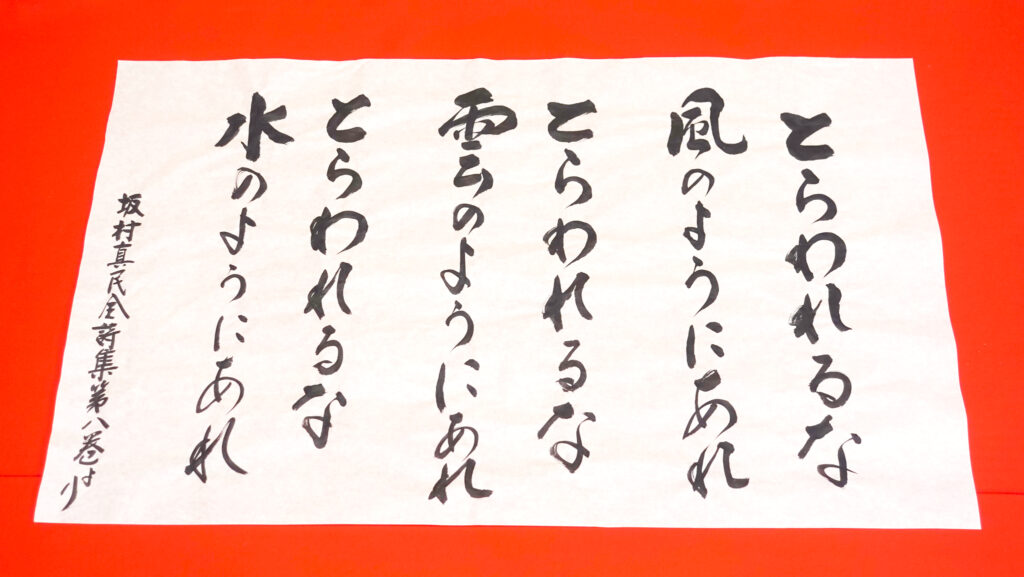 とらわれるな
風のようにあれ
とらわれるな
雲のようにあれ
とらわれるな
水のようにあれ
坂村真民全詩集第八巻より